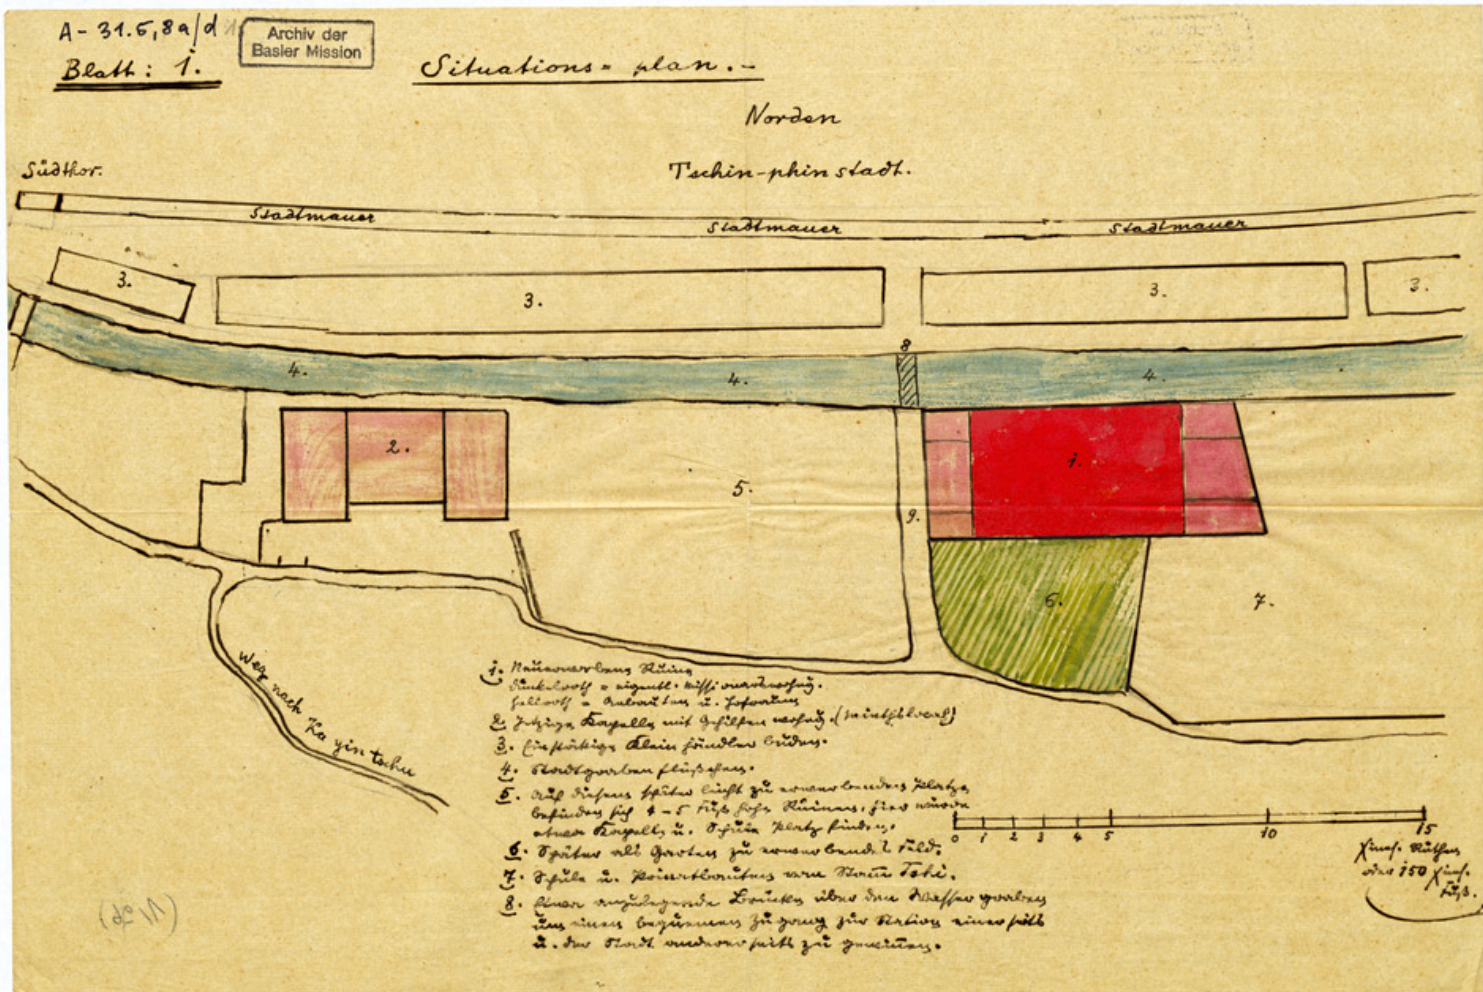 A - 31.5,8a/d
Archiv der
Basler Mission
Blatt: 1.
Situations= plan. -
Norden
Südthor.
Tschin-phin stadt.
Stadtmauer
Stadtmauer
Stadtmauer
3.
3.
3.
3.
8
4.
4.
4.
2.
1.
5.
9.
6.
7.
Weg nach Ka yin tschu
1. Neuerworbene Ruine
dunkelroth = eigentl. Missionarswohng.
hellroth = Anbauten u. Hofraum
2. Jetzige Kapelle mit Gehilfen wohng. (Miethslocal)
3. Einstöckige Kleinhändler buden.
4. Stadtgraben flüßchen.
5. Auf diesem später leicht zu erwerbenden Platze
befinden sich 4-5 Fuß hohe Ruinen, hier würde
etwa Kapelle u. Schule Platz finden.
6. Später als Garten zu erwerbendes Feld.
7. Schule u. Privatbauten vom Stam̄
8. Etwa anzulegende Brücke über den Wassergraben
um einen bequemen Zugang zur Station einerseits
u. der Stadt andererseits zu gewinnen.
0 1 2 3 4 5 10 15
chines. Ruthen
oder 150 chines.
Fuß.